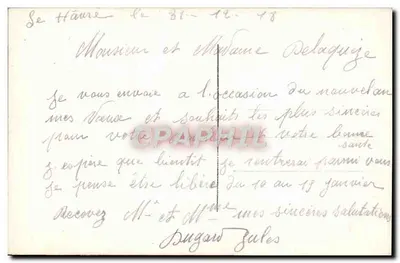 Le Havre le 31-12-18
Monsieur et Madame Delaquize
Je vous envoie a l'occasion du nouvel an
mes Vœux et souhaits les plus sincères
pour votre votre bonne
santé
j'espère que bientot je rentrerai parmi vous
je pense être libéré du 10 au 15 janvier
Recevez Mr et Mme mes sincères salutations
Dugard Jules